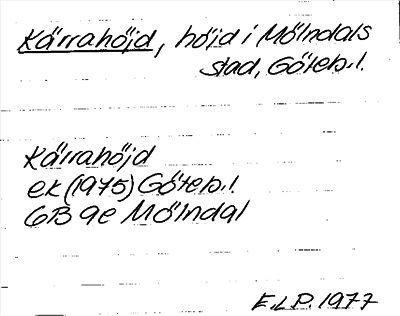 Kärrahöjd, höjd i Mölndals
stad, Göteb. l.
Kärrahöjd
ek (1975) Göteb. l.
6B 9e Mölndal
E.L.P. 1977